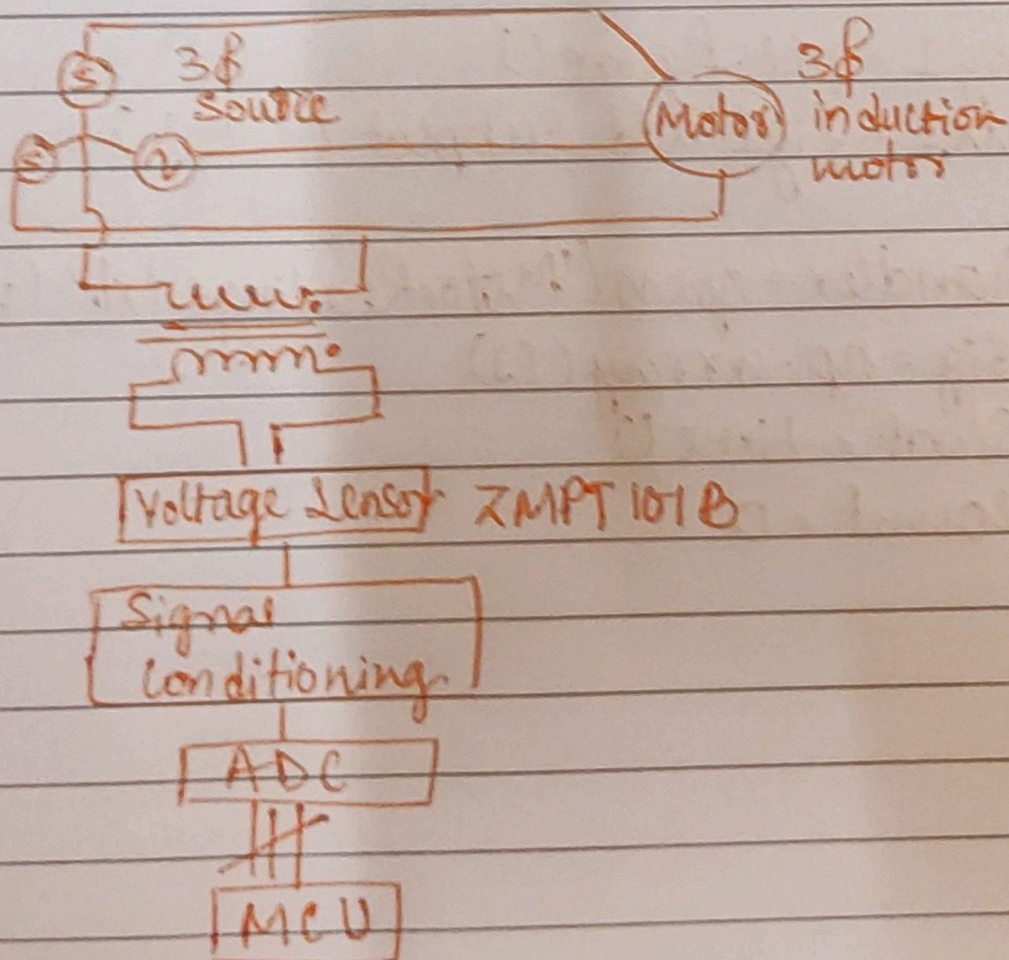 3ϕ
source
Motor
3ϕ
induction
motor
Voltage Sensor ZMPT 101B
Signal
Conditioning
ADC
MCU